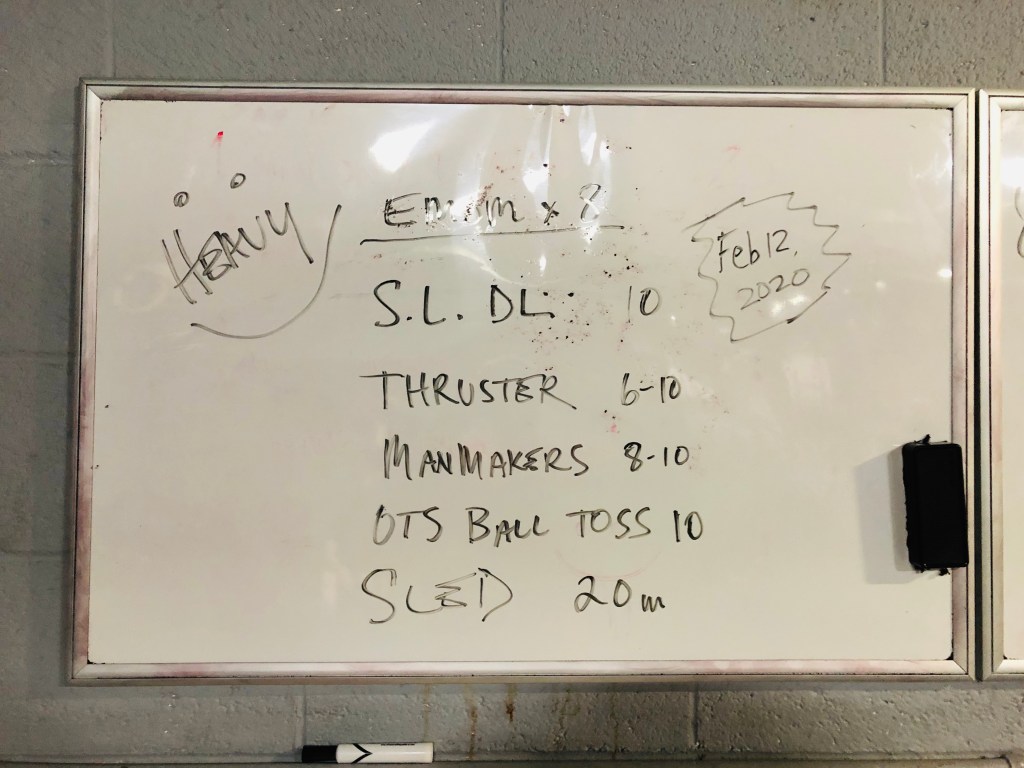 HEAVY
EMOM x 8
Feb 12,
2020
S.L. DL: 10
THRUSTER 6-10
MANMAKERS 8-10
OTS BALL TOSS 10
SLED 20m